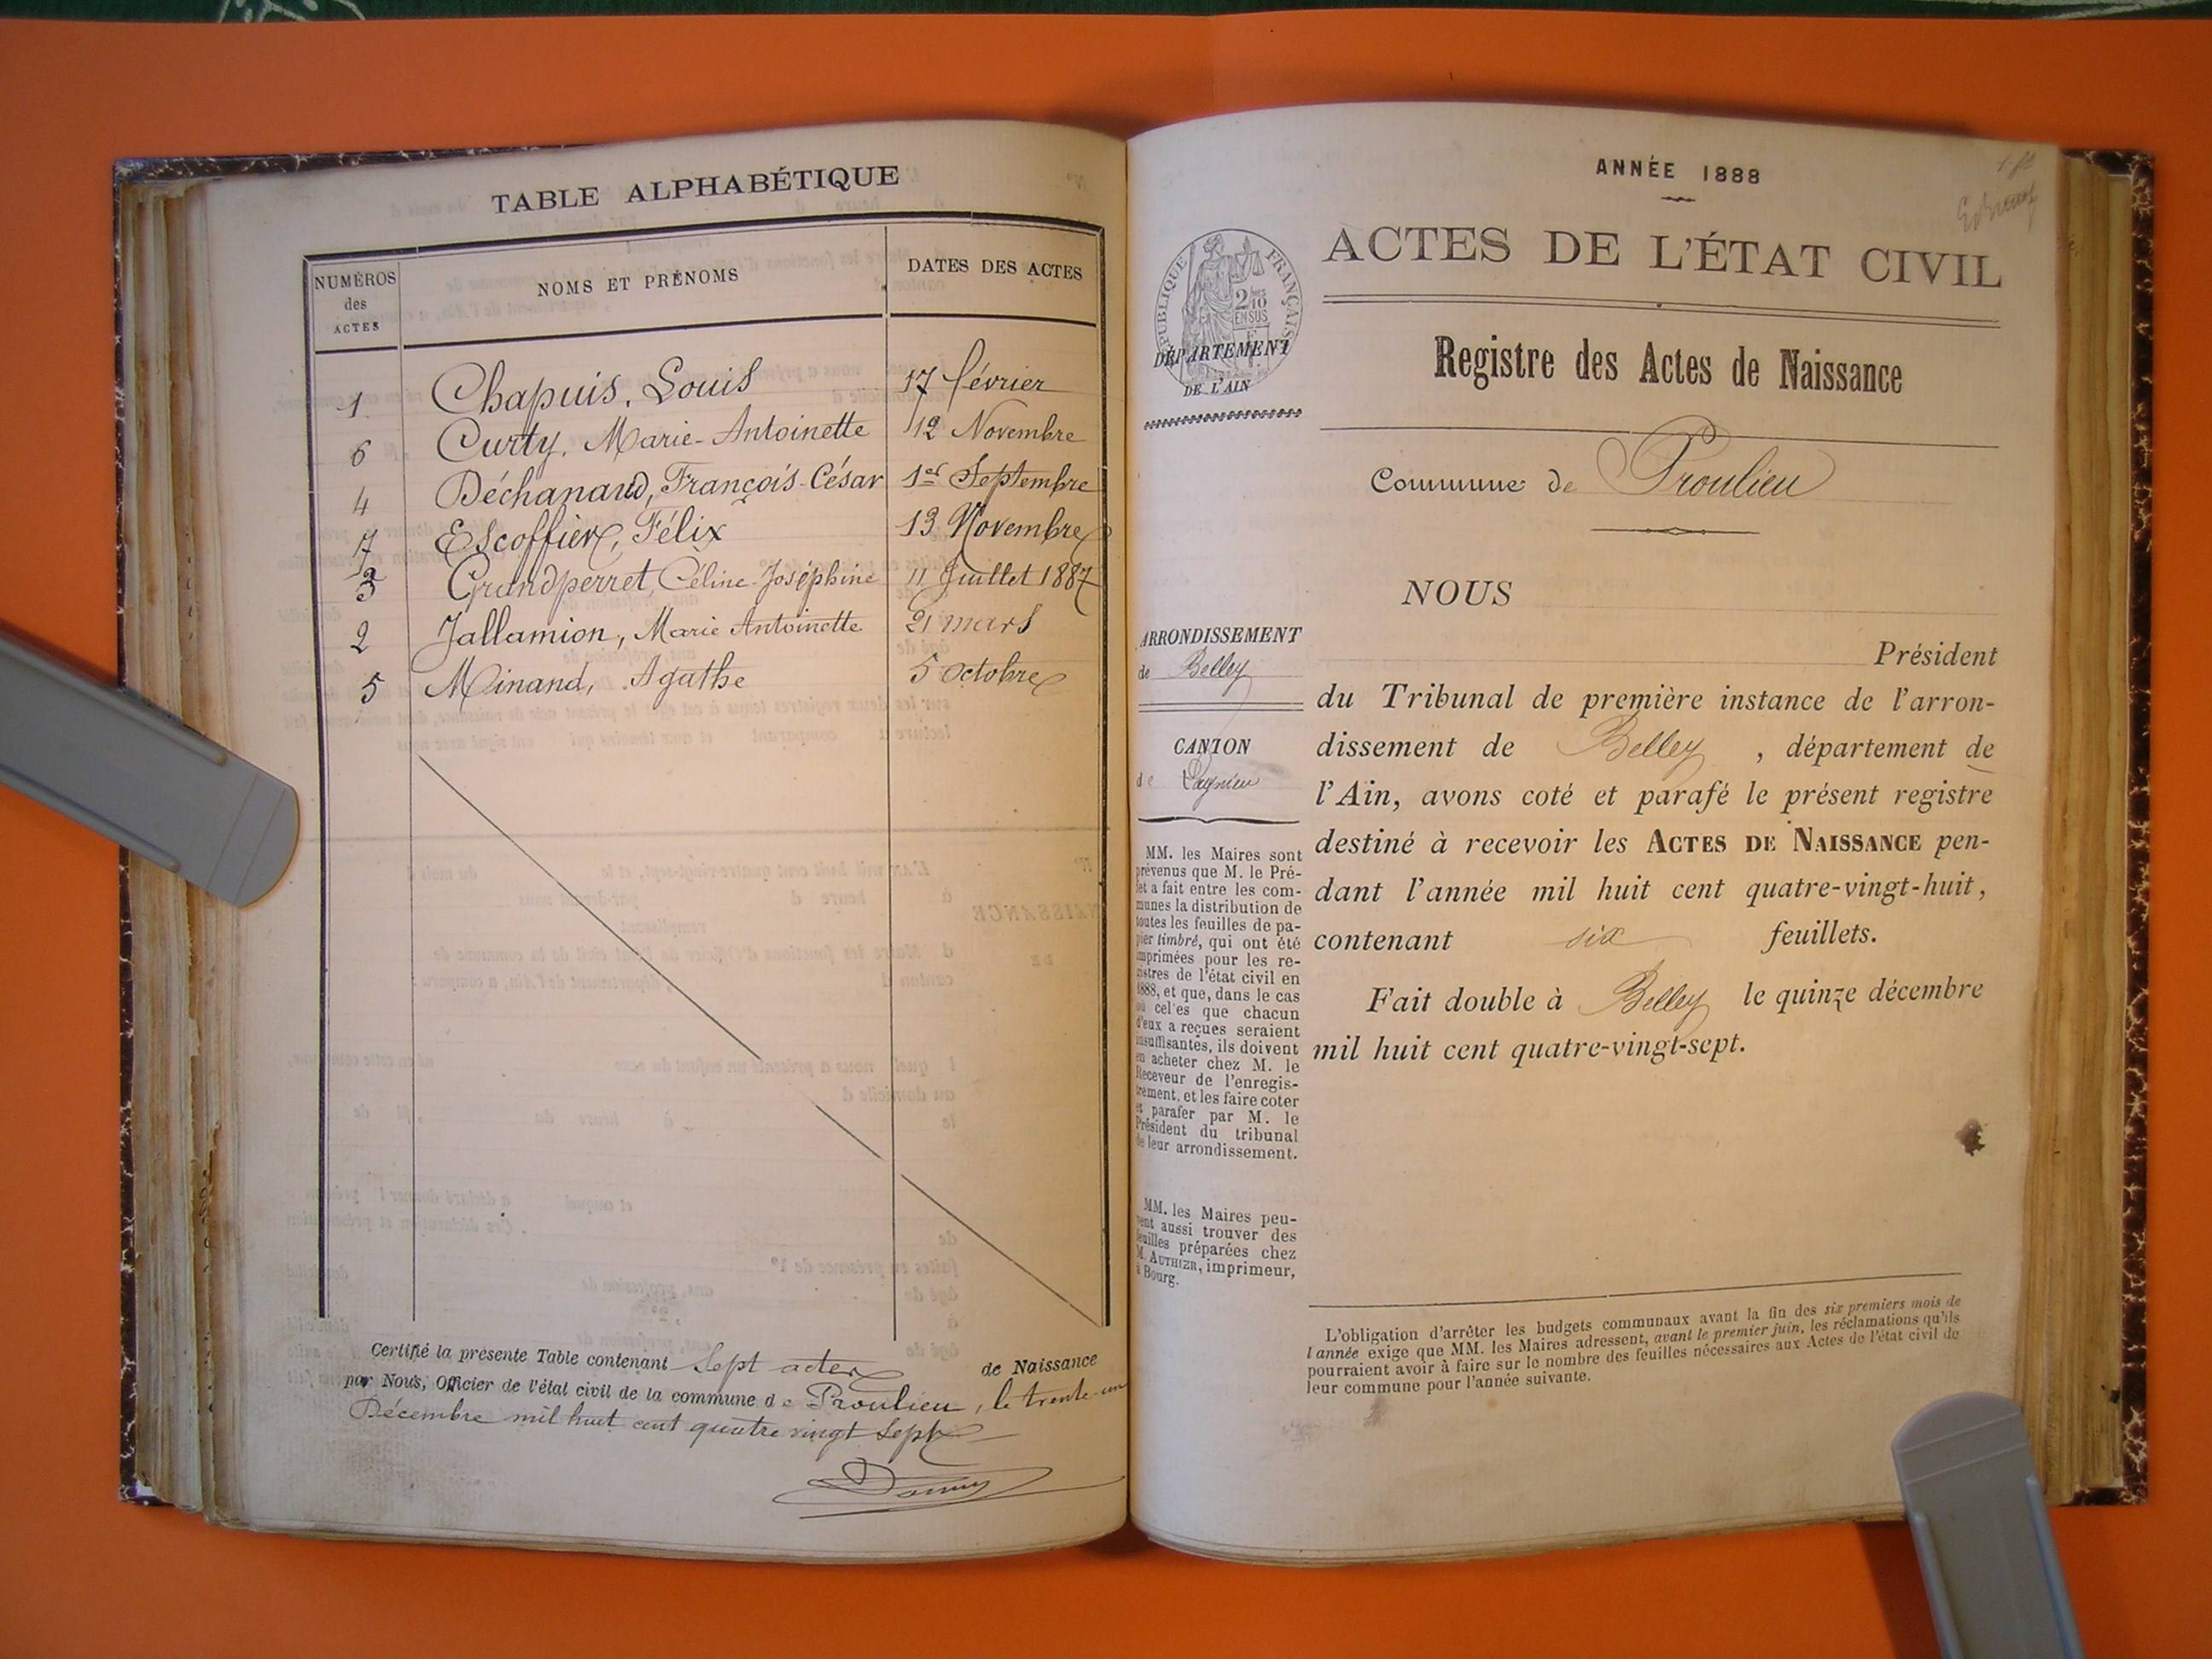 TABLE ALPHABÉTIQUE
NUMÉROS des ACTES
NOMS ET PRÉNOMS
DATES DES ACTES
1 Chapuis, Louis 17 février
6 Curty, Marie-Antoinette 12 Novembre
4 Déchanaud, François-César 1er Septembre
7 Escoffier, Félix 13 Novembre
3 Grandperret, Céline-Joséphine 11 Juillet 1887
2 Jallamion, Marie Antoinette 21 mars
5 Minand, Agathe 5 Octobre
Certifié la présente Table contenant sept actes de Naissance
par Nous, Officier de l'état civil de la commune de Proulieu, le trente-un
Décembre mil huit cent quatre vingt sept
ANNÉE 1888
ACTES DE L'ÉTAT CIVIL
RÉPUBLIQUE FRANÇAISE
2/10 EN SUS
DÉPARTEMENT
DE L'AIN
Registre des Actes de Naissance
Commune de Proulieu
NOUS
Président
du Tribunal de première instance de l'arron-
dissement de Belley, département de
l'Ain, avons coté et parafé le présent registre
destiné à recevoir les ACTES DE NAISSANCE pen-
dant l'année mil huit cent quatre-vingt-huit,
contenant six feuillets.
Fait double à Belley le quinze décembre
mil huit cent quatre-vingt-sept.
ARRONDISSEMENT
de Belley
CANTON
de Lagnieu
MM. les Maires sont
prévenus que M. le Pré-
fet a fait entre les com-
munes la distribution de
toutes les feuilles de pa-
pier timbré, qui ont été
imprimées pour les re-
gistres de l'état civil en
1888, et que, dans le cas
où celles que chacun
d'eux a reçues seraient
insuffisantes, ils doivent
en acheter chez M. le
Receveur de l'enregis-
trement, et les faire coter
et parafer par M. le
Président du tribunal
de leur arrondissement.
MM. les Maires peu-
vent aussi trouver des
feuilles préparées chez
M. AUTHIER, imprimeur,
à Bourg.
L'obligation d'arrêter les budgets communaux avant la fin des six premiers mois de
l'année exige que MM. les Maires adressent, avant le premier juin, les réclamations qu'ils
pourraient avoir à faire sur le nombre des feuilles nécessaires aux Actes de l'état civil de
leur commune pour l'année suivante.